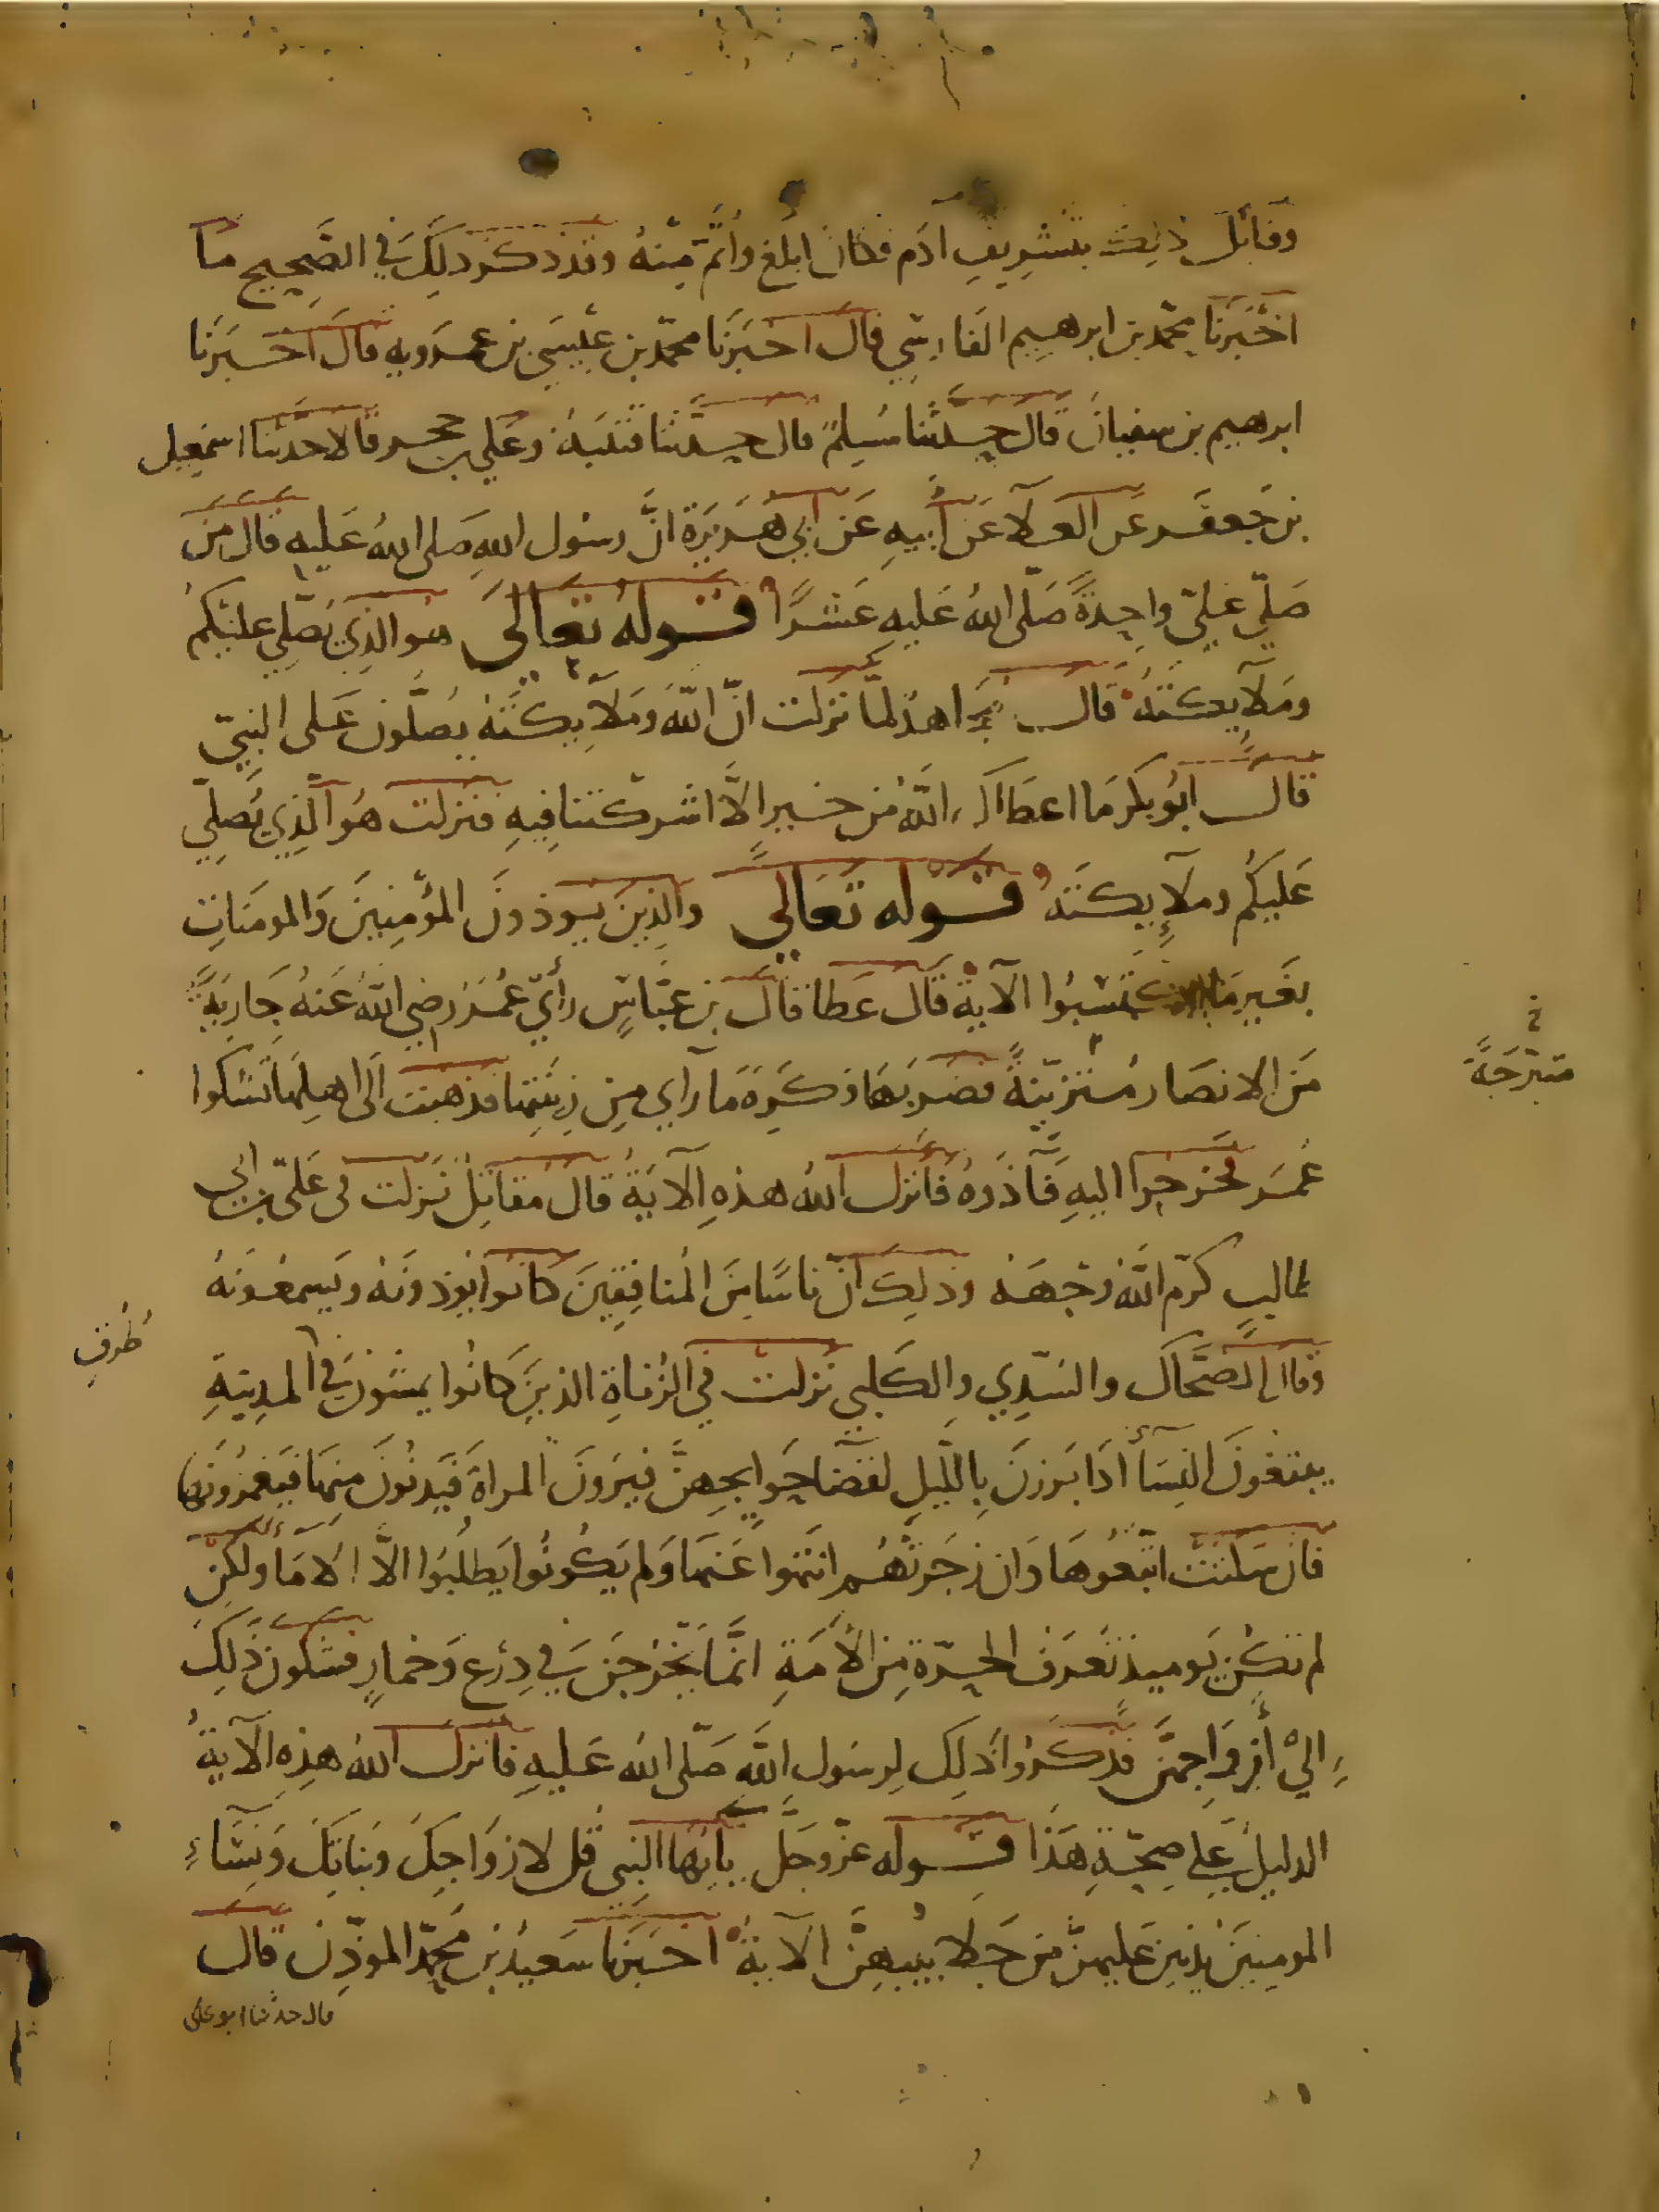 وقابل ذلك بتشريف آدم فكان ابلغ وأتم منه وقد ذكر ذلك في الصحيح ما
اخبرنا محمد بن ابرهيم الفارسي قال اخبرنا محمد بن عيسى بن عمرويه قال اخبرنا
ابرهيم بن سفيان قال حدثنا مسلم قال حدثنا قتيبة وعلي بن حجر قالا حدثنا اسمعيل
بن جعفر عن العلا عن أبيه عن ابي هريرة ان رسول الله صلى الله عليه قال من
صلى علي واحدة صلى الله عليه عشرا قوله تعالى هو الذي يصلي عليكم
وملايكته قال مجاهد لما نزلت ان الله وملايكته يصلون على النبي
قال ابو بكر ما اعطاك الله من خير الا اشركتنا فيه فنزلت هو الذي يصلي
عليكم وملايكته قوله تعالى والذين يوذون المؤمنين والمومنات
بغير ما اكتسبوا الآية قال عطا قال بن عباس رأى عمر رضي الله عنه جارية
من الانصار متزينة فضربها وكره ما رآى من زينتها فذهبت الى اهلها تشكوا
متبرجة
عمر فخرجوا اليه فآذوه فانزل الله هذه الآية قال مقاتل نزلت في علي بن ابي
طالب كرم الله وجهه وذلك ان ناسا من المنافقين كانوا يوذونه ويسمعونه
وقال الضحاك والسدي والكلبي نزلت في الزناة الذين كانوا يمشون في المدينة
طرق
يبتغون النسآ اذا برزن بالليل لقضا حوايجهن فيرون المراة فيدنون منها فيغمزونها
فان سكتت اتبعوها وان زجرتهم انتهوا عنها ولم يكونوا يطلبوا الا الاما ولكن
لم تكن يوميذ تعرف الحرة من الأمة انما يخرجن في درع وخمار فشكون ذلك
الي أزواجهن فذكروا ذلك لرسول الله صلى الله عليه فانزل الله هذه الآية
الدليل على صحة هذا قوله عز وجل يايها النبي قل لازواجك وبناتك ونساء
المومنين يدنين عليهن من جلابيبهن الآية اخبرنا سعيد بن محمد الموذن قال
قال حدثنا ابو علي